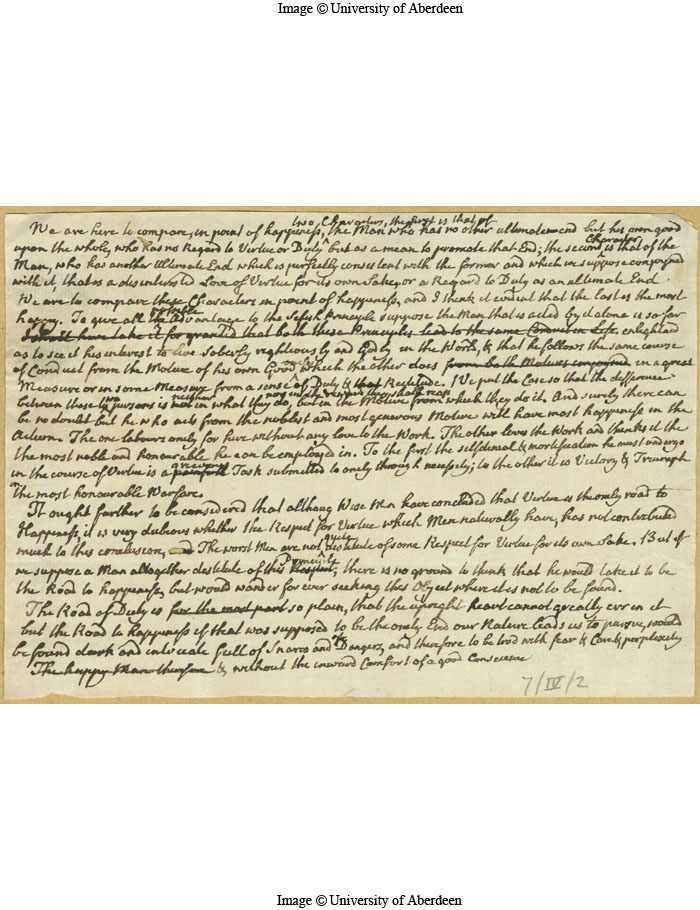 Image © University of Aberdeen
two Characters, the first is that of
We are here to compare, in point of happiness, the Man who has no other ultimate end but his own good
upon the whole, who has no Regard to Virtue or Duty but as a mean to promote that End; the second Character is that of the
Man, who has another Ultimate End which is perfectly consistent with the former and which we suppose conjoyned
with it, that is a disinterested Love of Virtue for its own Sake, or a Regard to Duty as an ultimate End
We are to compare these Characters in point of happiness, and I think it evident that the last is the most
happy. To give all possible Advantage to the Selfish Principle suppose the Man that is acted by it alone is so far
have take it for granted that both these Principles lead to the same Conduct in Life, enlightned
as to see it his interest to live Soberly righteously and Godly in the World, & that he follows the same course
of Conduct from the Motive of his own Good which the other does from both Motives conjoyned in a great
Measure or in some Measure from a sense of Duty & Rectitude. We put the Case so that the difference
between these two persons is neither not in what they do, but in the Motive from which they do it, And surely there can
be no doubt but he who acts from the noblest and most generous Motive will have most happiness in the
Action. The one labours onely for hire without any love to the Work. The other loves the Work and thinks it the
the most noble and honourable he can be employed in. To the first the selfdenial & mortification he must undergo
in the course of Virtue is a grievous painfull Task submitted to onely through necessity; to the other it is Victory & Triumph
in the most honourable Warfare.
It ought farther to be considered that althoug Wise Men have concluded that Virtue is the only road to
Happiness, it is very dubious whether the Respect for Virtue which Men naturally have, has not contributed
much to this conclusion, The worst Men are not quite destitute of some Respect for Virtue for its own Sake. But if
we suppose a Man altogether destitute of this Principle Respect, there is no ground to think that he would take it to be
the Road to happiness, but would wander for ever seeking this Object where it is not to be found.
The Road of Duty is for the most part so plain, that the upright heart cannot greatly err in it
but the Road to happiness if that was supposed to be the onely End our Nature leads us to pursue, would
be found dark and intricate full of Snares and Dangers, and therefore to be trod with fear & Care & perplexity
The happy Man therefore &, without the inward Comfort of a good Conscience
7/IV/2
Image © University of Aberdeen